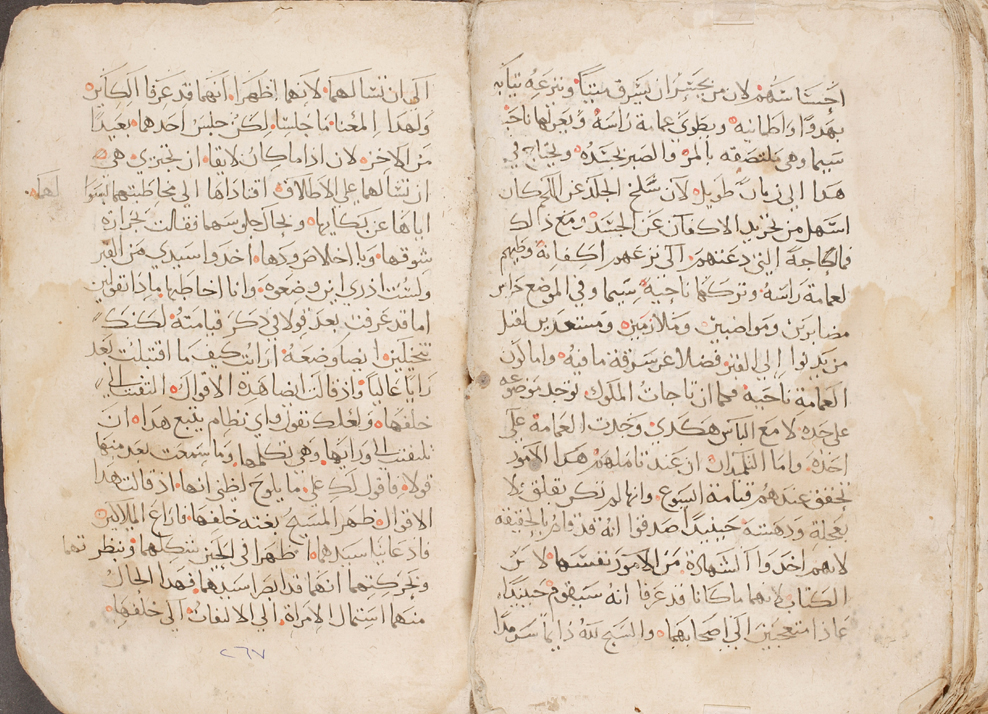 اجسادهم لان من يختير ان يسرق ميتاً وينزعه ثيابه
بهدوًا واطمانيه ويطوي عمامة راسه ويعزلها ناحيه
سيما وهي ملتصقه بالمر والصبر بجسده ويحتاج في
هذا الي زمان طويل لان سلخ الجلد عن اللحم كان
اسهل من تجريد الاكفان عن الجسد مع ذالك
فما الحاجة التي دعتهم الي نزعهم اكفانه وطيهم
لعمامة راسه وتركها ناحيه سيما وفي الموضع حراس
مضابرين ومواضبين وملازمين ومستعدين لقتل
من يدنوا الي القبر فضلا عن سرقة ما فيه واما كون
العمامة ناحيه فكما ان تاجات الملوك توجد موضوعه
علي حده لا مع اللباس هكدي وجدت العمامة علي
حده واما التلميدان ان عند تاملهم هدا الامور
تحقق عندهم قيامة يسوع وانها لم تكن بقلق ولا
بعجله ودهشه حينيدا صدقوا انه قد قام بالحقيقه
لانهم اخدوا الشهادة من الامور نفسها لا من
الكتاب لانهما ما كانا قد عرفا انه سيقوم حينيدا
عادا متعجبين الي اصحابهما والسبح لله دايما سرمدا
الي ان تسالهما لانهما اظهرا انهما قد عرفا الكاين
ولهدا المعنا ما جلسا لكن جلس احدهما بعيدا
من الاخر لان ادا ما كان لايقا ان تجتري هي
ان تسالهما علي الاطلاق اقتاداها الي مخاطبتهما لها
اياها عن بكايها وبحال جلوسهما فقالت بحرارة
شوقها وباخلاص ودها اخدوا سيدي من القبر
ولست ادري اين وضعوه وانا اخاطبها مادا تقولين
اما قد عرفت بعد قولا في دكر قيامته لكنك
تتخيلين ايضا وضعه ارايت كيف ما اقتبلت بعد
رايا عاليا واد قالت ايضا هده الاقوال التفتت الي
خلفها ولعلك تقول واي نظام يتبع هدا ان
تلتفت الي ورايها وهي تكلمهما وما سمعت بعد منهما
قولا فاقول لك علي ما يلوح لظني انها اد قالت هدا
الاقوال ظهر المسيح بغته خلفها فاراع الملاكين
فاد عاينا سيدهما ظهرا في الحين بشكلهما وبنظرتهما
وبحركتهما انهما قد ابصرا سيدهما فهدا الحال
منهما استمال الامراة الي الالتفات الي خلفها
٢٦٧